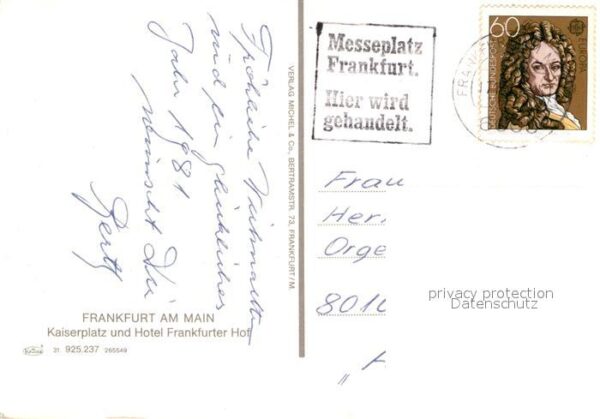 Fröhliche Weihnachten
und ein glückliches
Jahr 1981
wünscht Dir
VERLAG MICHEL & Co., BERTRAMSTR. 73, FRANKFURT/M.
FRANKFURT AM MAIN
Kaiserplatz und Hotel Frankfurter Hof
Krüger 31 925.237 265549
Messeplatz
Frankfurt.
Hier wird
gehandelt.
60
EUROPA
DEUTSCHE BUNDESPOST
Frau
Her
Orge
801
privacy protection
Datenschutz